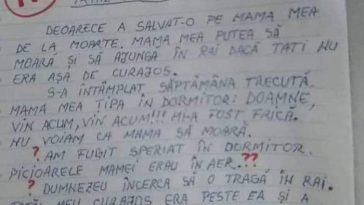 DEOARECE A SALVAT-O PE MAMA MEA
DE LA MOARTE. MAMA MEA PUTEA SĂ
MOARĂ ȘI SĂ AJUNGĂ ÎN RAI DACĂ TATI NU
ERA AȘA DE CURAJOS.
S-A ÎNTÂMPLAT SĂPTĂMÂNA TRECUTĂ.
MAMA MEA ȚIPA ÎN DORMITOR: DOAMNE,
VIN ACUM, VIN ACUM!!! MI-A FOST FRICĂ.
NU VOIAM CA MAMA SĂ MOARĂ.
? AM FUGIT SPERIAT ÎN DORMITOR.
PICIOARELE MAMEI ERAU ÎN AER. ??
? DUMNEZEU ÎNCERCA SĂ O TRAGĂ ÎN RAI.
MEU CURAJOS ERA PESTE EA ȘI A